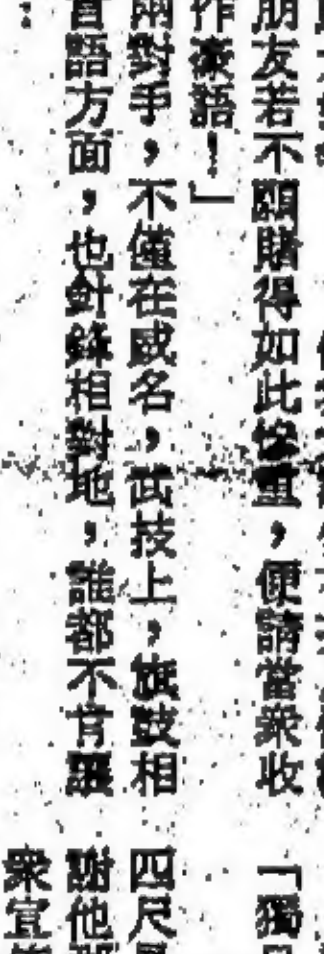 朋友若不願賭得如此慘重，便請當衆收
作豪語！」
兩對手，不僅在威名，武技上，旗鼓相
言語方面，也針鋒相對地，誰都不肯讓
「獨
四尺
謝他那
衆宣